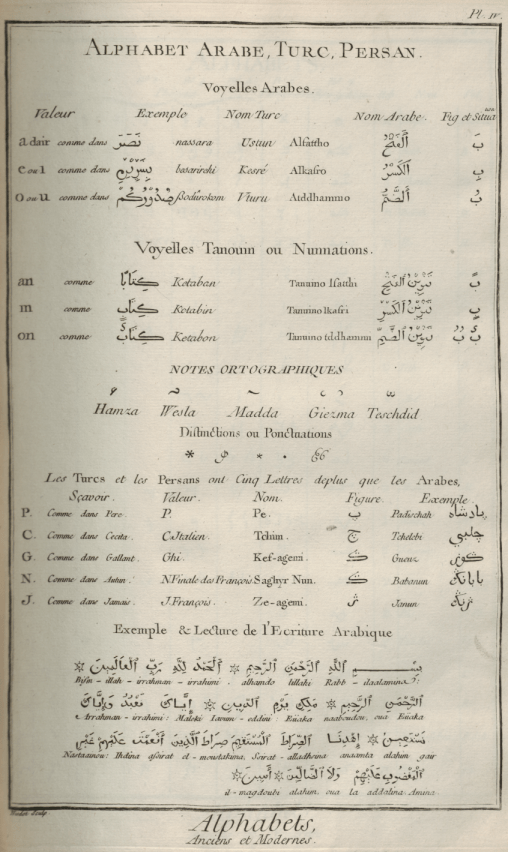 Pl. IV.
ALPHABET ARABE, TURC, PERSAN.
Voyelles Arabes.
Valeur Exemple Nom Turc Nom Arabe. Fig et Situa^on
a dair comme dans نَصَرَ nassara Ustun Alfattho اَلْفَتْحُ بَ
e ou i comme dans besarirshi Kesré Alkasro اَلْكَسْرُ بِ
o ou u comme dans صُدُورُكُمْ ßodurokom Uturu Atddhammo اَلضَّمُّ بُ
Voyelles Tanouin ou Nunnations.
an comme كِتَابًا Ketaban Tanuino lfatthi تَنْوِينُ اَلْفَتْحِ بً
in comme كِتَابٍ Ketabin Tanuino lkasri تَنْوِينُ اَلْكَسْرِ بٍ
on comme كِتَابٌ Ketabon Tanuino tddhammi تَنْوِينُ اَلضَّمِّ بٌ
NOTES ORTOGRAPHIQUES
Hamza Wesla Madda Giezma Teschdid
Distinctions ou Ponctuations
Les Turcs et les Persans ont Cinq Lettres deplus que les Arabes,
Sçavoir. Valeur. Nom. Figure. Exemple.
P. Comme dans Pere. P. Pe. پ Padischah پادشاه
C. Comme dans Cecita. C. Italien. Tchim. چ Tchelebi چلبي
G. Comme dans Gallant. Ghi. Kef-agemi. Gueuz كوز
N. Comme dans Autun. N Finale des François Saghyr Nun. Babanun بابانك
J. Comme dans Jamais. J. François. Ze-agemi. ژ Janun
Exemple & Lecture de l'Ecriture Arabique
بِسْمِ اَللّٰهِ اَلرَّحْمَنِ اَلرَّحِيمِ * اَلْحَمْدُ لِلّٰهِ رَبِّ اَلْعَالَمِينَ *
Bism - illah - irrahman - irrahimi. alhamdo lillahi Rabb - ilaalamina.
اَلرَّحْمَنِ اَلرَّحِيمِ * مَلِكِ يَوْمِ اَلدِّينِ * إِيَّاكَ نَعْبُدُ وَإِيَّاكَ
Arrahman - irrahimi. Maleki Iaoum - eddini. Eiiaka naaboudou, oua Eiiaka
نَسْتَعِينُ * اِهْدِنَا اَلصِّرَاطَ اَلْمُسْتَقِيمَ صِرَاطَ اَلَّذِينَ أَنْعَمْتَ عَلَيْهِمْ غَيْرِ
Nastaainou. Ihdina assirat el - moustakima, Soirat - alladhina anaamta alahim gair
اَلْمَغْضُوبِ عَلَيْهِمْ وَلَا اَلضَّالِّينَ * أَمِينَ *
il - magdoubi alahim, oua la addalina. Amina.
Alphabets,
Anciens et Modernes.